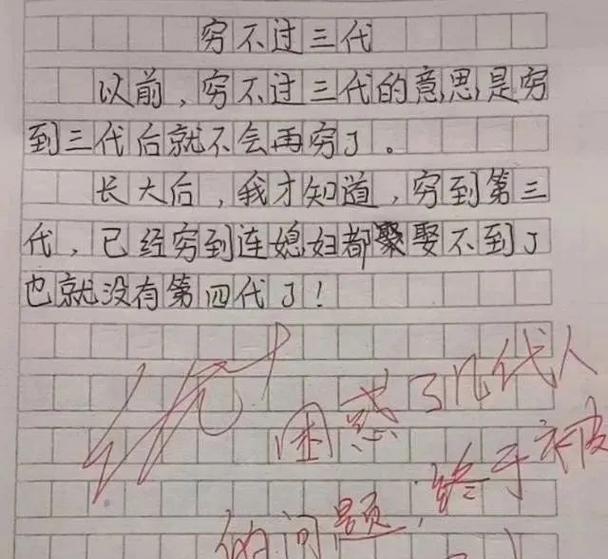 穷不过三代
以前，穷不过三代的意思是穷
到三代后就不会再穷了。
长大后，我才知道，穷到第三
代，已经穷到连媳妇都聚娶不到了
也就没有第四代了！
优+
困惑了几代人
的问题，终于被